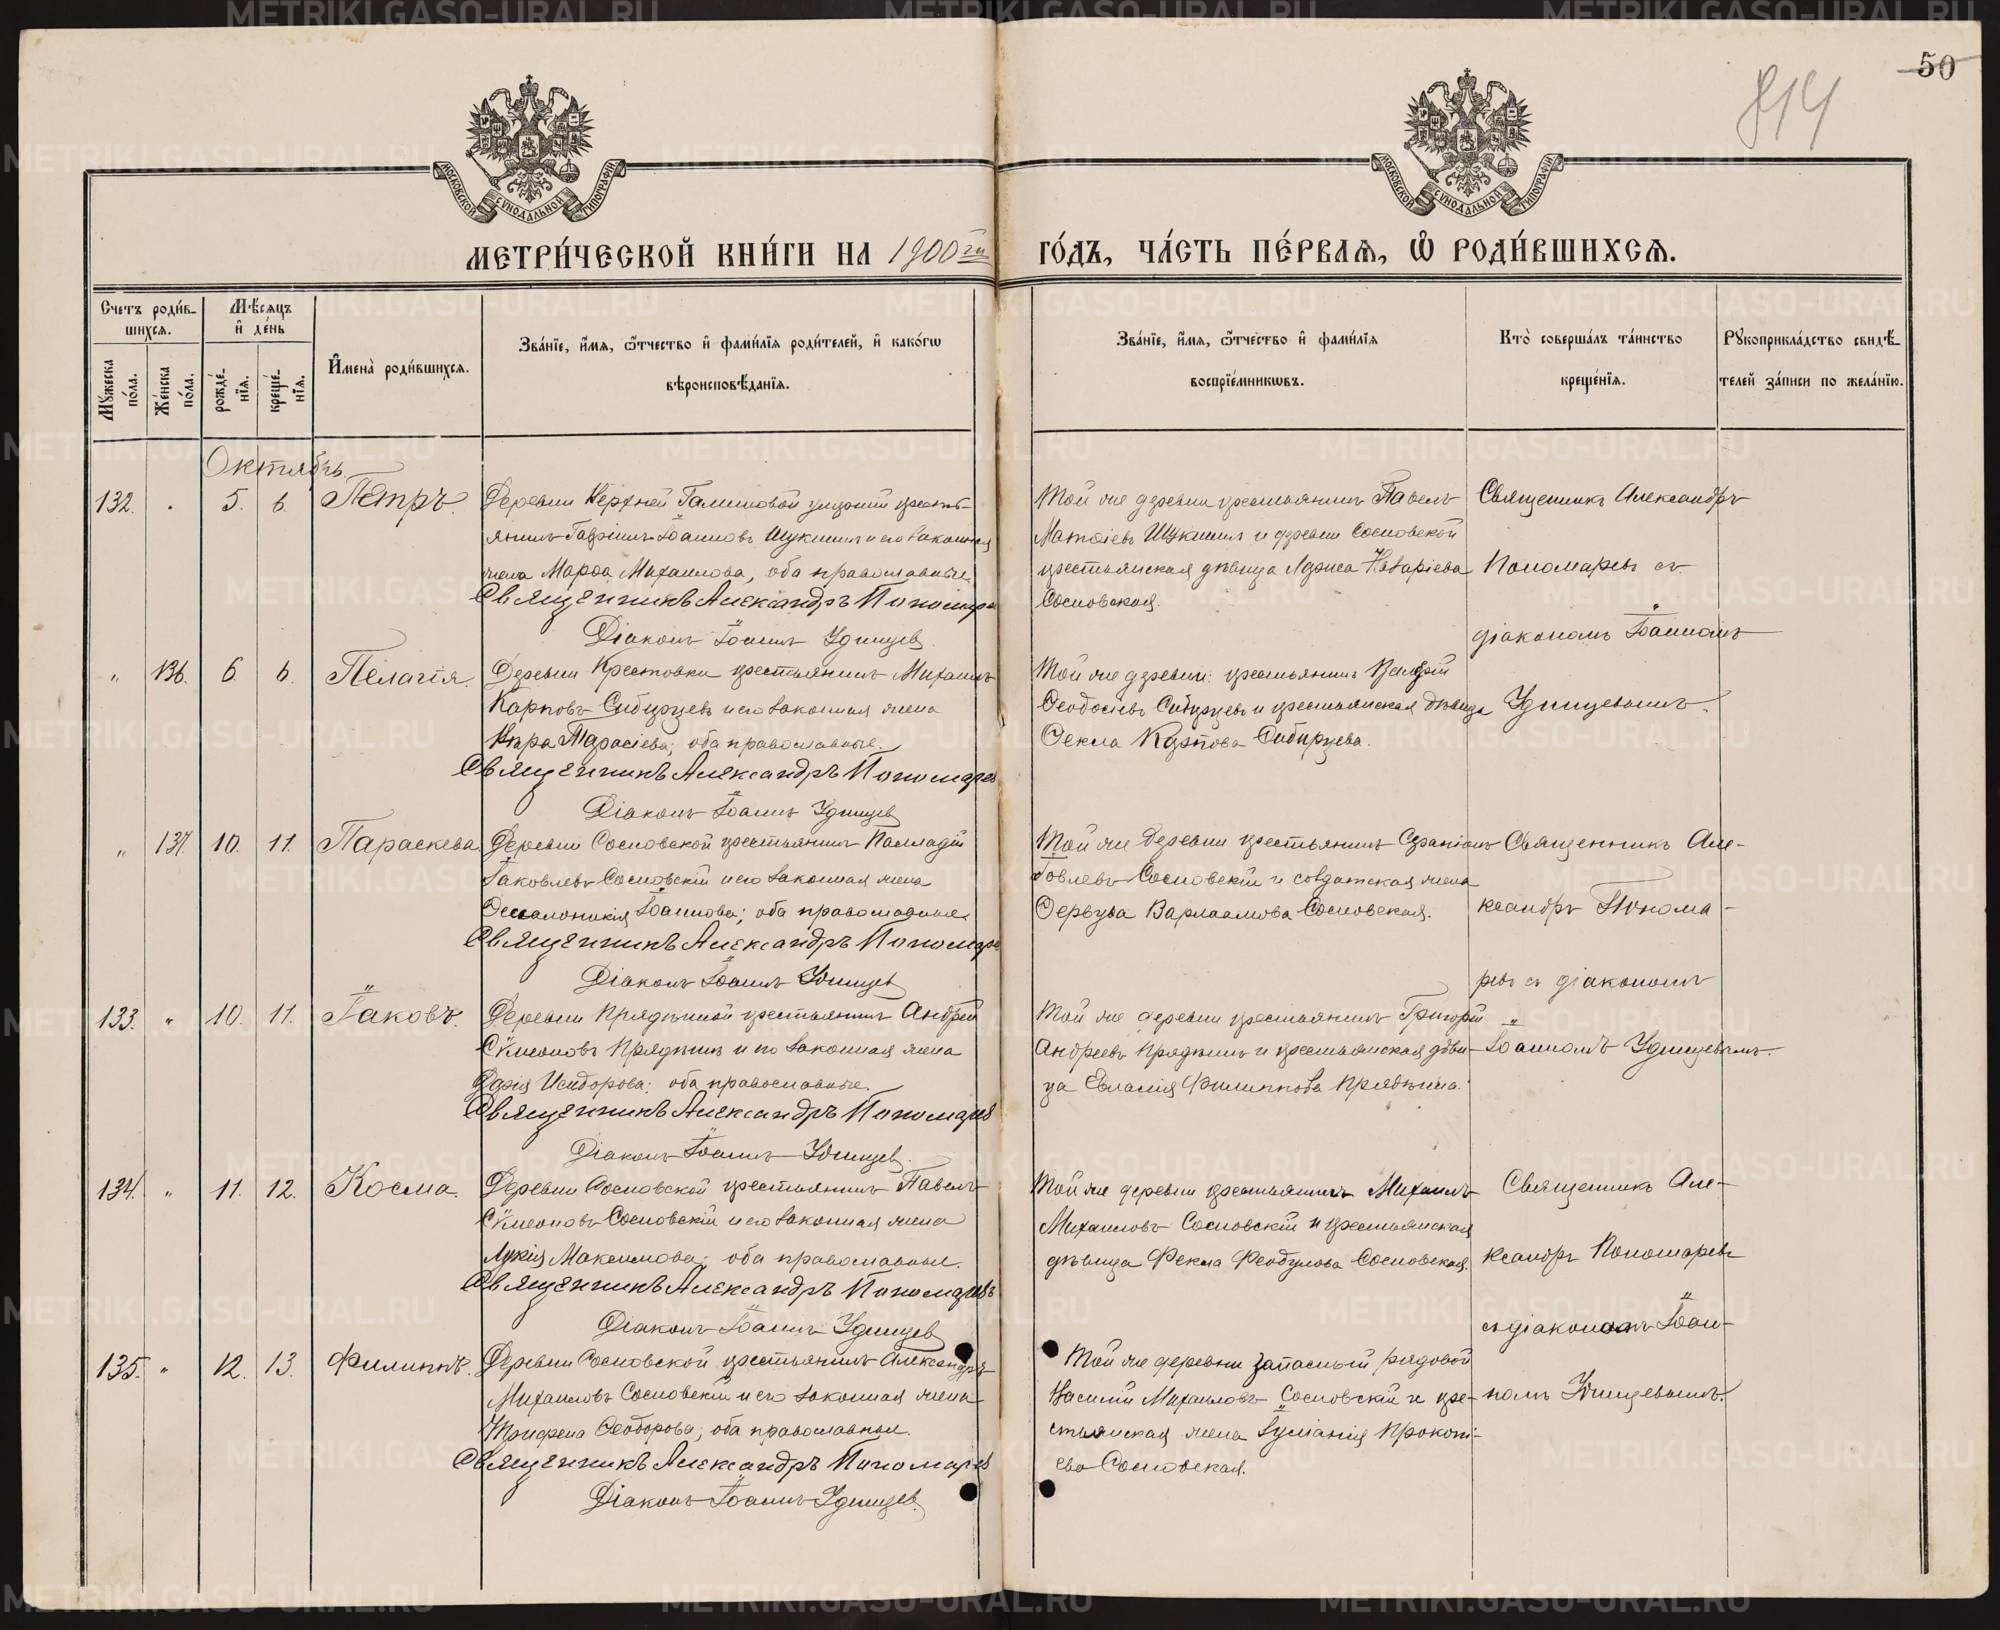 50
814
МОСКОВСКОЙ СѴНОДАЛЬНОЙ ТИПОГРАФІИ
МОСКОВСКОЙ СѴНОДАЛЬНОЙ ТИПОГРАФІИ
МЕТРИ́ЧЕСКОЙ КНИ́ГИ НА 1900й ГО́ДЪ, ЧА́СТЬ ПЕ́РВАѦ, Ѽ РОДИ́ВШИХСѦ.
Счетъ роди́в-
шихсѧ.
Мѣ́сѧцъ
и҆ де́нь
Мꙋ́жеска по́ла.
Же́нска по́ла.
рожде́-
нїѧ.
креще́-
нїѧ.
И҆мена̀ роди́вшихсѧ.
Зва́нїе, и҆́мѧ, ѻ҆́тчество и҆ фами́лїѧ роди́телей, и҆ како́гѡ
вѣроисповѣ́данїѧ.
Зва́нїе, и҆́мѧ, ѻ҆́тчество и҆ фами́лїѧ
воспрїе́мникѡвъ.
Кто̀ соверша́лъ та́инство
креще́нїѧ.
Рꙋкоприкла́дство свидѣ́-
телей за́писи по жела́нїю.
Октябрь
132. 5. 6. Петръ.
Деревни Верхней Галишовой крестья-
янинъ Гавріилъ Іоанновъ Щукинъ и его законная
жена Марѳа Михаилова, оба православные.
Священникъ Александръ Пономаревъ
Діаконъ Іоаннъ Удинцев
Той же деревни крестьянинъ Павелъ
Матѳіевъ Щукинъ и деревни Сосновской
крестьянская дѣвица Лариса Назаріева
Сосновская.
Священникъ Александръ
Пономаревъ съ
діакономъ Іоанномъ
Удинцевымъ.
" 136. 6. 6. Пелагія.
Деревни Крестовки крестьянинъ Михаилъ
Карповъ Сибирцевъ и его законная жена
Кира Тарасіева; оба православные.
Священникъ Александръ Пономарев
Діаконъ Іоаннъ Удинцев
Той же деревни крестьянинъ Валерій
Ѳеодосіевъ Сибирцевъ и крестьянская дѣвица
Ѳекла Карпова Сибирцева.
" 137. 10. 11. Параскева.
Деревни Сосновской крестьянинъ Палладій
Іаковлевъ Сосновскій и его законная жена
Ѳессалоникія Іоаннова; оба православные.
Священникъ Александръ Пономарев
Діаконъ Іоаннъ Удинцев
Той же деревни крестьянинъ Серапіонъ
Іовлевъ Сосновскій и солдатская жена
Ѳервуѳа Варлаамова Сосновская.
Священникъ Але-
ксандръ Понома-
ревъ съ діакономъ
Іоанномъ Удинцевымъ.
133. " 10. 11. Іаковъ.
Деревни Прядѣиной крестьянинъ Андрей
Сѵмеоновъ Прядѣинъ и его законная жена
Дарія Исидорова; оба православные.
Священникъ Александръ Пономарев
Діаконъ Іоаннъ Удинцев.
Той же деревни крестьянинъ Григорій
Андреевъ Прядѣинъ и крестьянская дѣви-
ца Евлампія Филиппова Прядѣина.
134. " 11. 12. Косма.
Деревни Сосновской крестьянинъ Павелъ
Сѵмеоновъ Сосновскій и его законная жена
Лукія Максимова; оба православные.
Священникъ Александръ Пономаревъ
Діаконъ Іоаннъ Удинцев
Той же деревни крестьянинъ Михаилъ
Михаиловъ Сосновскій и крестьянская
дѣвица Фекла Феодулова Сосновская.
Священникъ Але-
ксандръ Пономаревъ
съ діакономъ Іоан-
номъ Удинцевымъ.
135. " 12. 13. Филиппъ.
Деревни Сосновской крестьянинъ Александръ
Михаиловъ Сосновскій и его законная жена
Трифена Ѳеодорова; оба православные.
Священникъ Александръ Пономарев
Діаконъ Іоаннъ Удинцев.
Той же деревни запасный рядовой
Василій Михаиловъ Сосновскій и кре-
стьянская жена Іуліанія Прокопі-
ева Сосновская.
METRIKI.GASO-URAL.RU